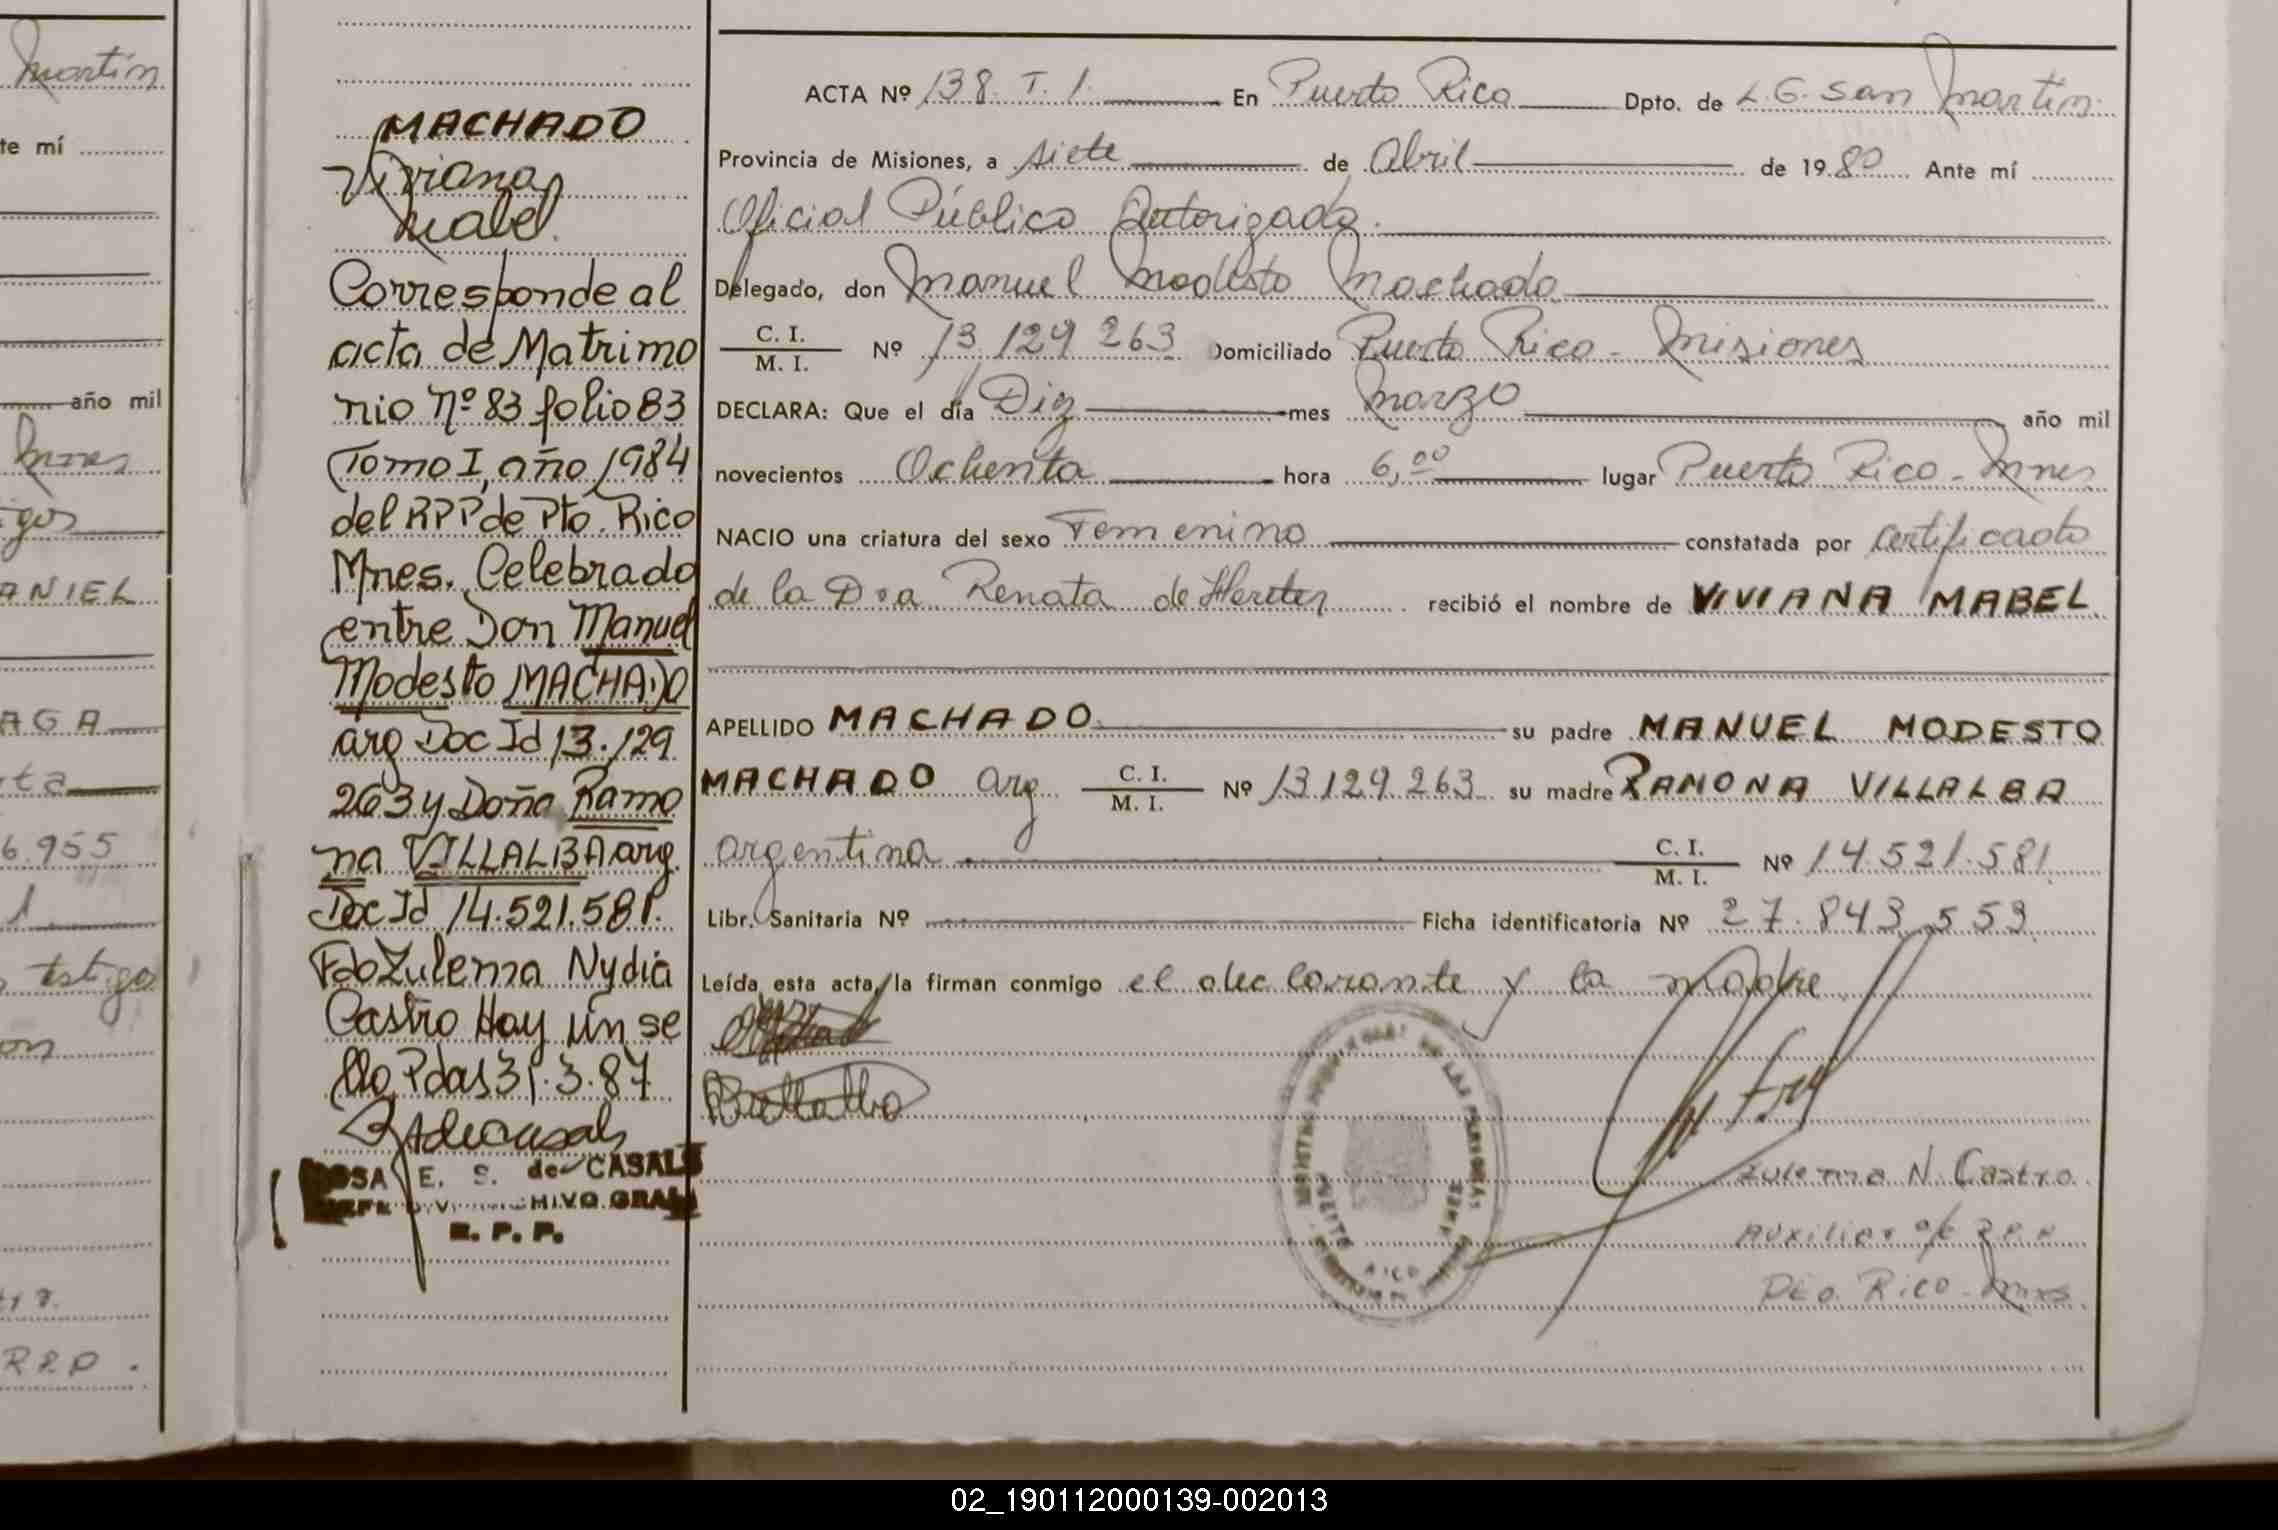 Martín
te mí
año mil
Mnes
ANIEL
AGA
ta
6.955
1
testigo
on
R.P.P.
MACHADO
Viviana
Mabel.
Corresponde al
acta de Matrimo
nio Nº 83 folio 83
Tomo I, año 1984
del RPP de Pto. Rico
Mnes. Celebrado
entre Don Manuel
Modesto MACHADO
arg Doc Id 13.129
263 y Doña Ramo
na VILLALBA arg.
Doc Id 14.521.581.
Fdo Zulema Nydia
Castro Hay un se
llo Pdas 31.3.87
ROSA E. S. de CASALS
GRAL
R. P. P.
ACTA Nº 138. T. 1. En Puerto Rico Dpto. de L. G. San Martín.
Provincia de Misiones, a siete de Abril de 1980 Ante mí
Oficial Público Autorizado.
Delegado, don Manuel Modesto Machado
C. I.
M. I. Nº 13.129.263 Domiciliado Puerto Rico - Misiones
DECLARA: Que el día Diez mes Marzo año mil
novecientos Ochenta hora 6,00 lugar Puerto Rico - Mnes
NACIO una criatura del sexo Femenino constatada por certificado
de la Dra Renata de Herter recibió el nombre de VIVIANA MABEL
APELLIDO MACHADO su padre MANUEL MODESTO
MACHADO arg C. I. M. I. Nº 13.129.263 su madre RAMONA VILLALBA
argentina C. I. M. I. Nº 14.521.581
Libr. Sanitaria Nº Ficha identificatoria Nº 27.843.553
Leída esta acta, la firman conmigo el declarante y la madre
Zulema N. Castro
Auxiliar a/c R.P.P.
Pto. Rico - Mnes
02_190112000139-002013